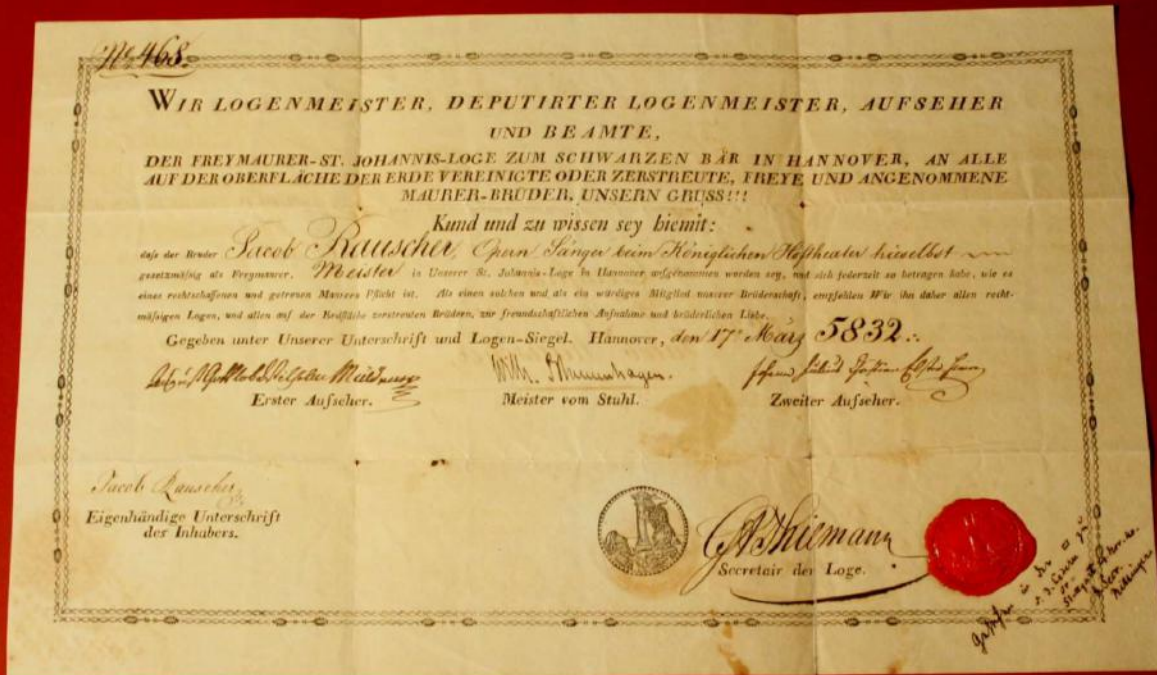 No 468.
WIR LOGENMEISTER, DEPUTIRTER LOGENMEISTER, AUFSEHER
UND BEAMTE,
DER FREYMAURER-ST. JOHANNIS-LOGE ZUM SCHWARZEN BÄR IN HANNOVER, AN ALLE
AUF DER OBERFLÄCHE DER ERDE VEREINIGTE ODER ZERSTREUTE, FREYE UND ANGENOMMENE
MAURER-BRÜDER, UNSERN GRUSS!!!
Kund und zu wissen sey hiemit:
dass der Bruder Jacob Rauscher, Opern Sänger beim Königlichen Hoftheater hieselbst
gesetzmäsig als Freymaurer, Meister in Unserer St. Johannis-Loge in Hannover aufgenommen worden sey, und sich jederzeit so betragen habe, wie es
eines rechtschaffenen und getreuen Maurers Pflicht ist. Als einen solchen und als ein würdiges Mitglied unserer Brüderschaft, empfehlen Wir ihn daher allen recht-
mäsigen Logen, und allen auf der Erdfläche zerstreuten Brüdern, zur freundschaftlichen Aufnahme und brüderlichen Liebe.
Gegeben unter Unserer Unterschrift und Logen-Siegel. Hannover, den 17t März 5832.
Wilh. Blumenhagen.
Erster Aufseher. Meister vom Stuhl. Zweiter Aufseher.
Jacob Rauscher
Eigenhändige Unterschrift
des Inhabers.
Thiemann
Secretair der Loge.